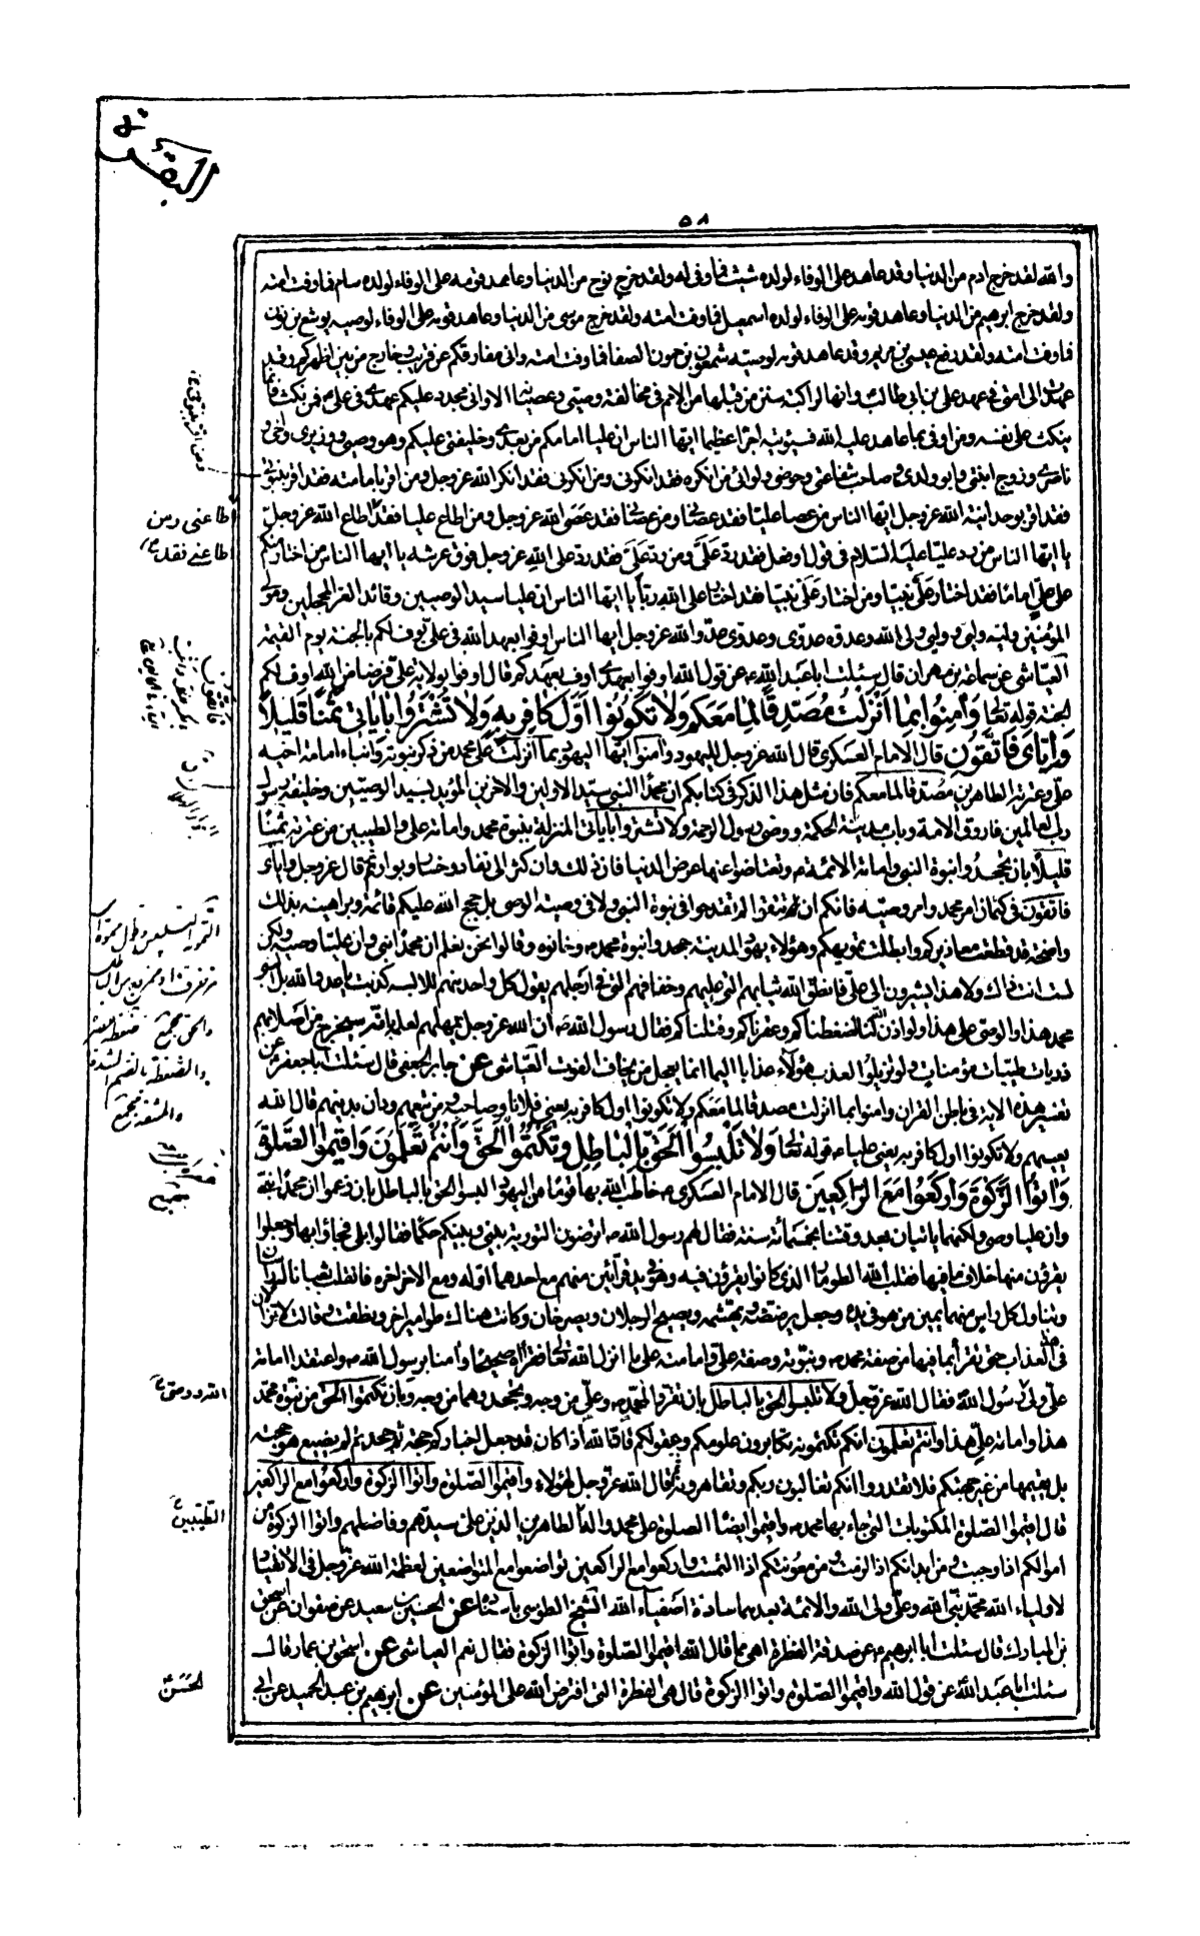 البقرة
٥٨
والله لقد خرج ادم من الدنيا وقد عاهد على الوفاء لولده شيث فما وفى له ولقد خرج نوح من الدنيا وعاهد قومه على الوفاء لولده سام فما وفت امته
ولقد خرج ابرهيم من الدنيا وعاهد قومه على الوفاء لولده اسمعيل فما وفت امته ولقد خرج موسى من الدنيا وعاهد قومه على الوفاء لوصيه يوشع بن نون
فما وفت امته ولقد رفع عيسى بن مريم وقد عاهد قومه لوصيه شمعون بن حمون الصفا فما وفت امته وانى مفارقكم عن قريب وخارج من بين اظهركم وقد
عهدت الى امتى فى عهد على بن ابى طالب وانها لراكبة سنن من قبلها من الامم فى مخالفة وصيتى وعصيانى الا وانى مجدد عليكم عهدى فى على فمن نكث فانما
ينكث على نفسه ومن اوفى بما عاهد عليه الله فسيؤتيه اجرا عظيما ايها الناس ان عليا امامكم من بعدى وخليفتى عليكم وهو وصيى ووزيرى واخى و
ناصرى وزوج ابنتى وابو ولدى وصاحب شفاعتى وحوضى ولوائى من انكره فقد انكرنى ومن انكرنى فقد انكر الله عز وجل ومن اقر بامامته فقد اقر بنبوتى
فقد اقر بوحدانية الله عز وجل ايها الناس من عصا عليا فقد عصانى ومن عصانى فقد عصى الله عز وجل ومن اطاع عليا فقد اطاع الله عز وجل
يا ايها الناس من رد عليا عليه السلام فى قول او فعل فقد رد على ومن رد على فقد رد على الله عز وجل فوق عرشه يا ايها الناس من اختار منكم
على على اماما فقد اختار على نبيا ومن اختار على نبيا فقد اختار على الله ربا يا ايها الناس ان عليا سيد الوصيين وقائد الغر المحجلين ومولى
المؤمنين وليه وليى ووليى ولى الله وعدوه عدوى وعدوى عدو الله عز وجل ايها الناس اوفوا بعهد الله فى على يوف لكم بالجنة يوم القيمة
العياشى عن سماعة بن مهران قال سئلت ابا عبد الله ع عن قول الله اوفوا بعهدى اوف بعهدكم قال اوفوا بولاية على فرضا من الله اوف لكم
الجنة قوله تعالى وَآمِنُوا بِمَا أَنْزَلْتُ مُصَدِّقًا لِمَا مَعَكُمْ وَلَا تَكُونُوا أَوَّلَ كَافِرٍ بِهِ وَلَا تَشْتَرُوا بِآيَاتِي ثَمَنًا قَلِيلًا
وَإِيَّايَ فَاتَّقُونِ قال الامام العسكرى قال الله عز وجل لليهود وامنوا ايها اليهود بما انزلت على محمد من ذكر نبوته وانباء امامة اخيه
على وعترته الطاهرين مصدقا لما معكم فان مثل هذا الذكر فى كتابكم ان محمدا النبى سيد الاولين والاخرين المؤيد بسيد الوصيين وخليفة رسول
رب العالمين فاروق الامة وباب مدينة الحكمة ووصى رسول الرحمة ولا تشتروا باياتى المنزلة بنبوة محمد وامامة على والطيبين من عترته ثمنا
قليلا بان تجحدوا نبوة النبى وامامة الائمة ع وتعتاضوا عنها عرض الدنيا فان ذلك وان كثر الى نفاد وخسار وبوار ثم قال عز وجل واياى
فاتقون فى كتمان امر محمد وامر وصيه فانكم ان لم تتقوا لم تقدحوا فى نبوة النبى ولا فى وصية الوصى بل حجج الله عليكم قائمة وبراهينه بذلك
واضحة قد قطعت معاذيركم وابطلت تمويهكم وهؤلاء يهود المدينة جحدوا نبوة محمد ص وخانوه وقالوا نحن نعلم ان محمدا نبى وان عليا وصيه ولكن
لست انت ذاك ولا هذا يشيرون الى على فانطق الله ثيابهم التى عليهم وخفافهم التى فى ارجلهم يقول كل واحد منهم للابسه كذبت يا عدو الله بل النبى
محمد هذا والوصى على هذا ولو اذن لنا لضغطناكم وعقرناكم وقتلناكم فقال رسول الله ص ان الله عز وجل يمهلهم لعلمه بانه سيخرج من اصلابهم
ذريات طيبات مؤمنات ولو تزيلوا لعذب هؤلاء عذابا اليما انما يعجل من يخاف الفوت العياشى عن جابر الجعفى قال سئلت ابا جعفر ع عن
تفسير هذه الاية فى باطن القران وامنوا بما انزلت مصدقا لما معكم ولا تكونوا اول كافر به يعنى فلانا وصاحبه ومن تبعهم ودان بدينهم قال الله
يعيبهم ولا تكونوا اول كافر به يعنى عليا ع قوله تعالى وَلَا تَلْبِسُوا الْحَقَّ بِالْبَاطِلِ وَتَكْتُمُوا الْحَقَّ وَأَنْتُمْ تَعْلَمُونَ وَأَقِيمُوا الصَّلٰوةَ
وَآتُوا الزَّكٰوةَ وَارْكَعُوا مَعَ الرَّاكِعِينَ قال الامام العسكرى ع خاطب الله بها قوما من اليهود لبسوا الحق بالباطل بان زعموا ان محمدا نبى
وان عليا وصى ولكنهما ياتيان بعد وقتنا بخمسمائة سنة فقال لهم رسول الله ص اترضون التورية بينى وبينكم حكما فقالوا بلى فجاؤا بها وجعلوا
يقرؤن منها خلاف ما فيها فقلب الله الطومار الذى كانوا يقرؤن فيه وهو فى يد قرآئين منهم مع احدهما اوله ومع الاخر اخره فانقلب ثعبانا له راسان
وتناول كل راس منهما يمين من هو فى يده وجعل يرضضه ويهشمه ويصيح الرجلان ويصرخان وكانت هناك طوامير اخر فنطقت وقالت لا تزالان
فى هذا العذاب حتى تقرأ بما فيها من صفة محمد ص ونبوته وصفة على وامامته على ما انزل الله تعالى فقرأاه صحيحا وامنا برسول الله ص واعتقدا امامة
على ولى رسول الله فقال الله عز وجل ولا تلبسوا الحق بالباطل بان تقروا بمحمد ص وعلى من وجه وتجحدوهما من وجه وبان تكتموا الحق من نبوة محمد
هذا وامامة على هذا وانتم تعلمون انكم تكتمونه تكابرون علومكم وعقولكم فان الله اذا كان قد جعل اخباركم حجة ثم جحدتم لم يضيع هو حجته
بل يقيمها من غير جهتكم فلا تقدروا انكم تغالبون ربكم وتقاهرونه ثم قال الله عز وجل لهؤلاء واقيموا الصلوة واتوا الزكوة واركعوا مع الراكعين
قال اقيموا الصلوة المكتوبات التى جاء بها محمد ص واقيموا ايضا الصلوة على محمد واله الطاهرين الذين على سيدهم وفاضلهم واتوا الزكوة من
اموالكم اذا وجبت ومن ابدانكم اذا لزمت ومن معونتكم اذا التمست واركعوا مع الراكعين تواضعوا مع المتواضعين لعظمة الله عز وجل فى الانقياد
لاولياء الله محمد نبى الله وعلى ولى الله والائمة بعدهما سادة اصفياء الله الشيخ الطوسى باسناده عن الحسين بن سعيد عن صفوان عن اسحق
بن المبارك قال سئلت ابا ابرهيم ع عن صدقة الفطرة اهى مما قال الله اقيموا الصلوة واتوا الزكوة فقال نعم العياشى عن اسحق بن عمار قال
سئلت ابا عبد الله عن قول الله واقيموا الصلوة واتوا الزكوة قال هى الفطرة التى افترض الله على المؤمنين عن ابرهيم بن عبد الحميد عن ابى
ومن اقر بنبوتى
اطاعنى ومن
اطاعنى فقد
والحق مجمع
والضغطة بالضم الشدة
والمشقة مجمع
الله ووصى
الطيبين
الحسن